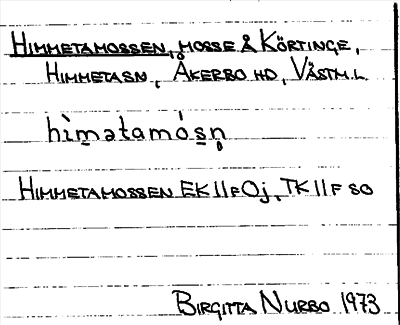 HIMMETAMOSSEN, MOSSE Å KÖRTINGE,
HIMMETASN, ÅKERBO HD, VÄSTM.L.
hìm̲ətamós̲n̥
HIMMETAMOSSEN EK 11 F 0j, TK 11 F SO
BIRGITTA NURBO 1973